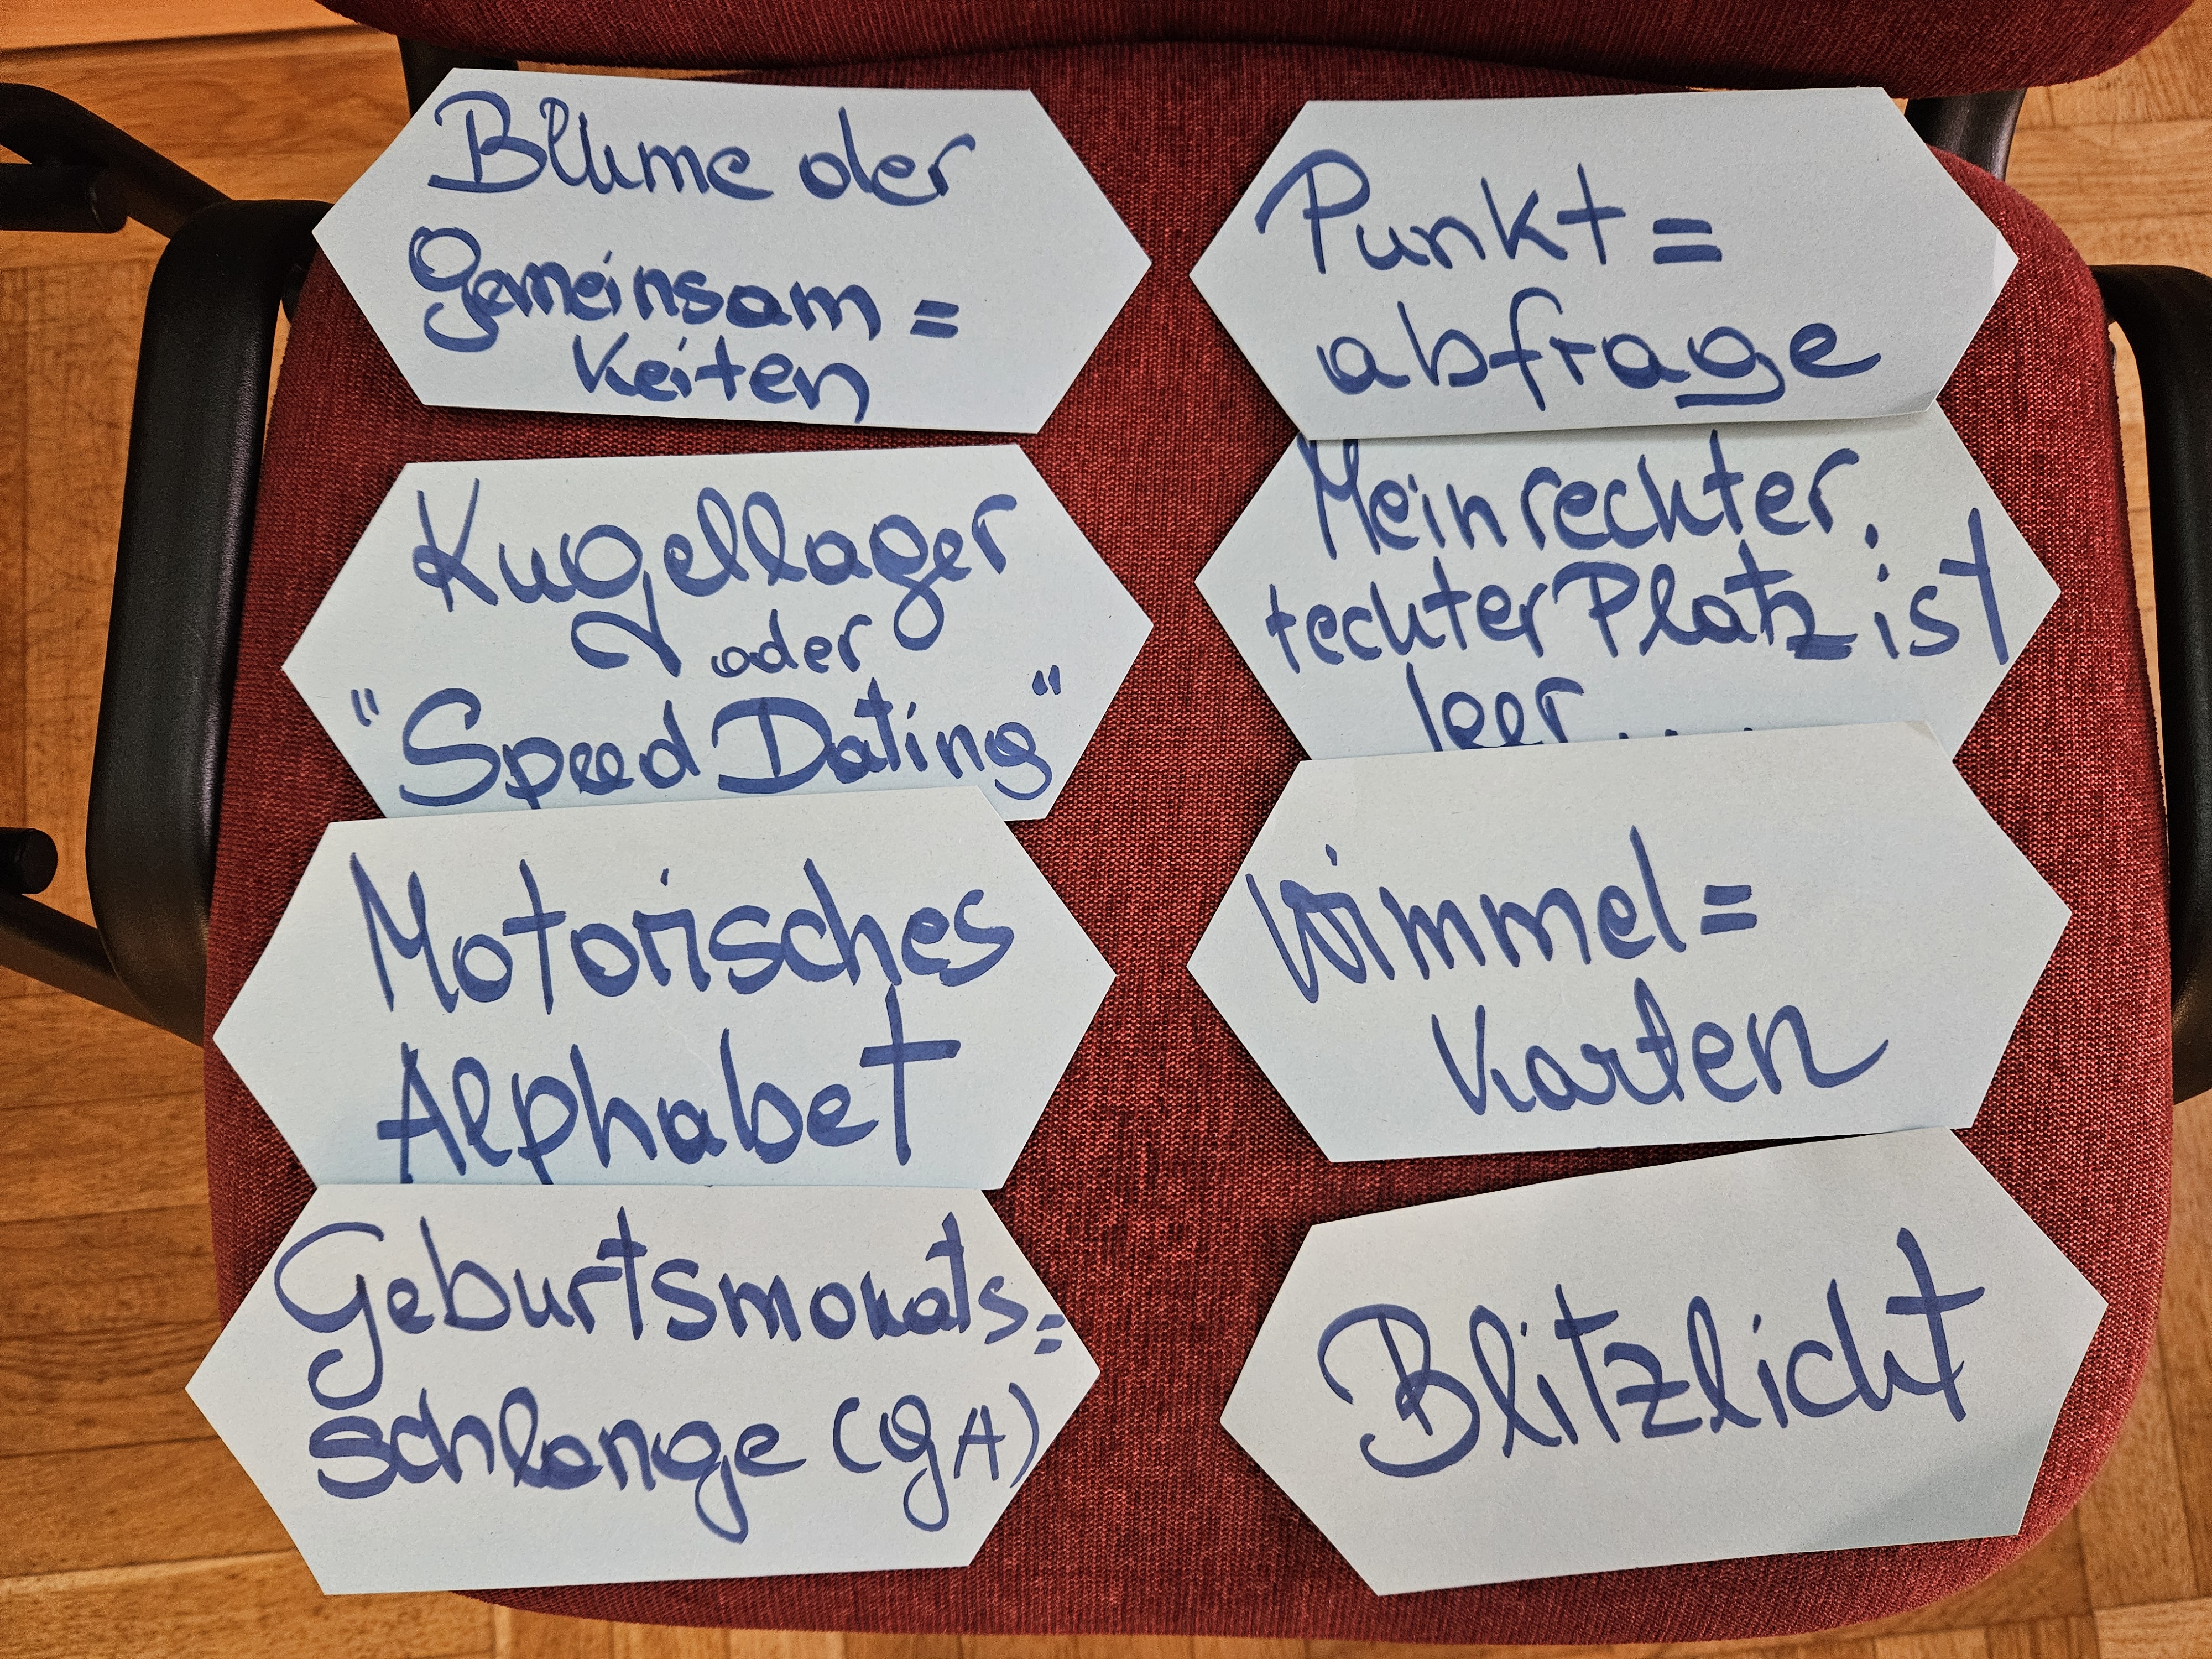 Blume der
Gemeinsam=
keiten
Kugellager
oder
"Speed Dating"
Motorisches
Alphabet
Geburtsmonats=
schlange (GA)
Punkt=
abfrage
Mein rechter,
rechter Platz ist
leer....
Wimmel=
Karten
Blitzlicht